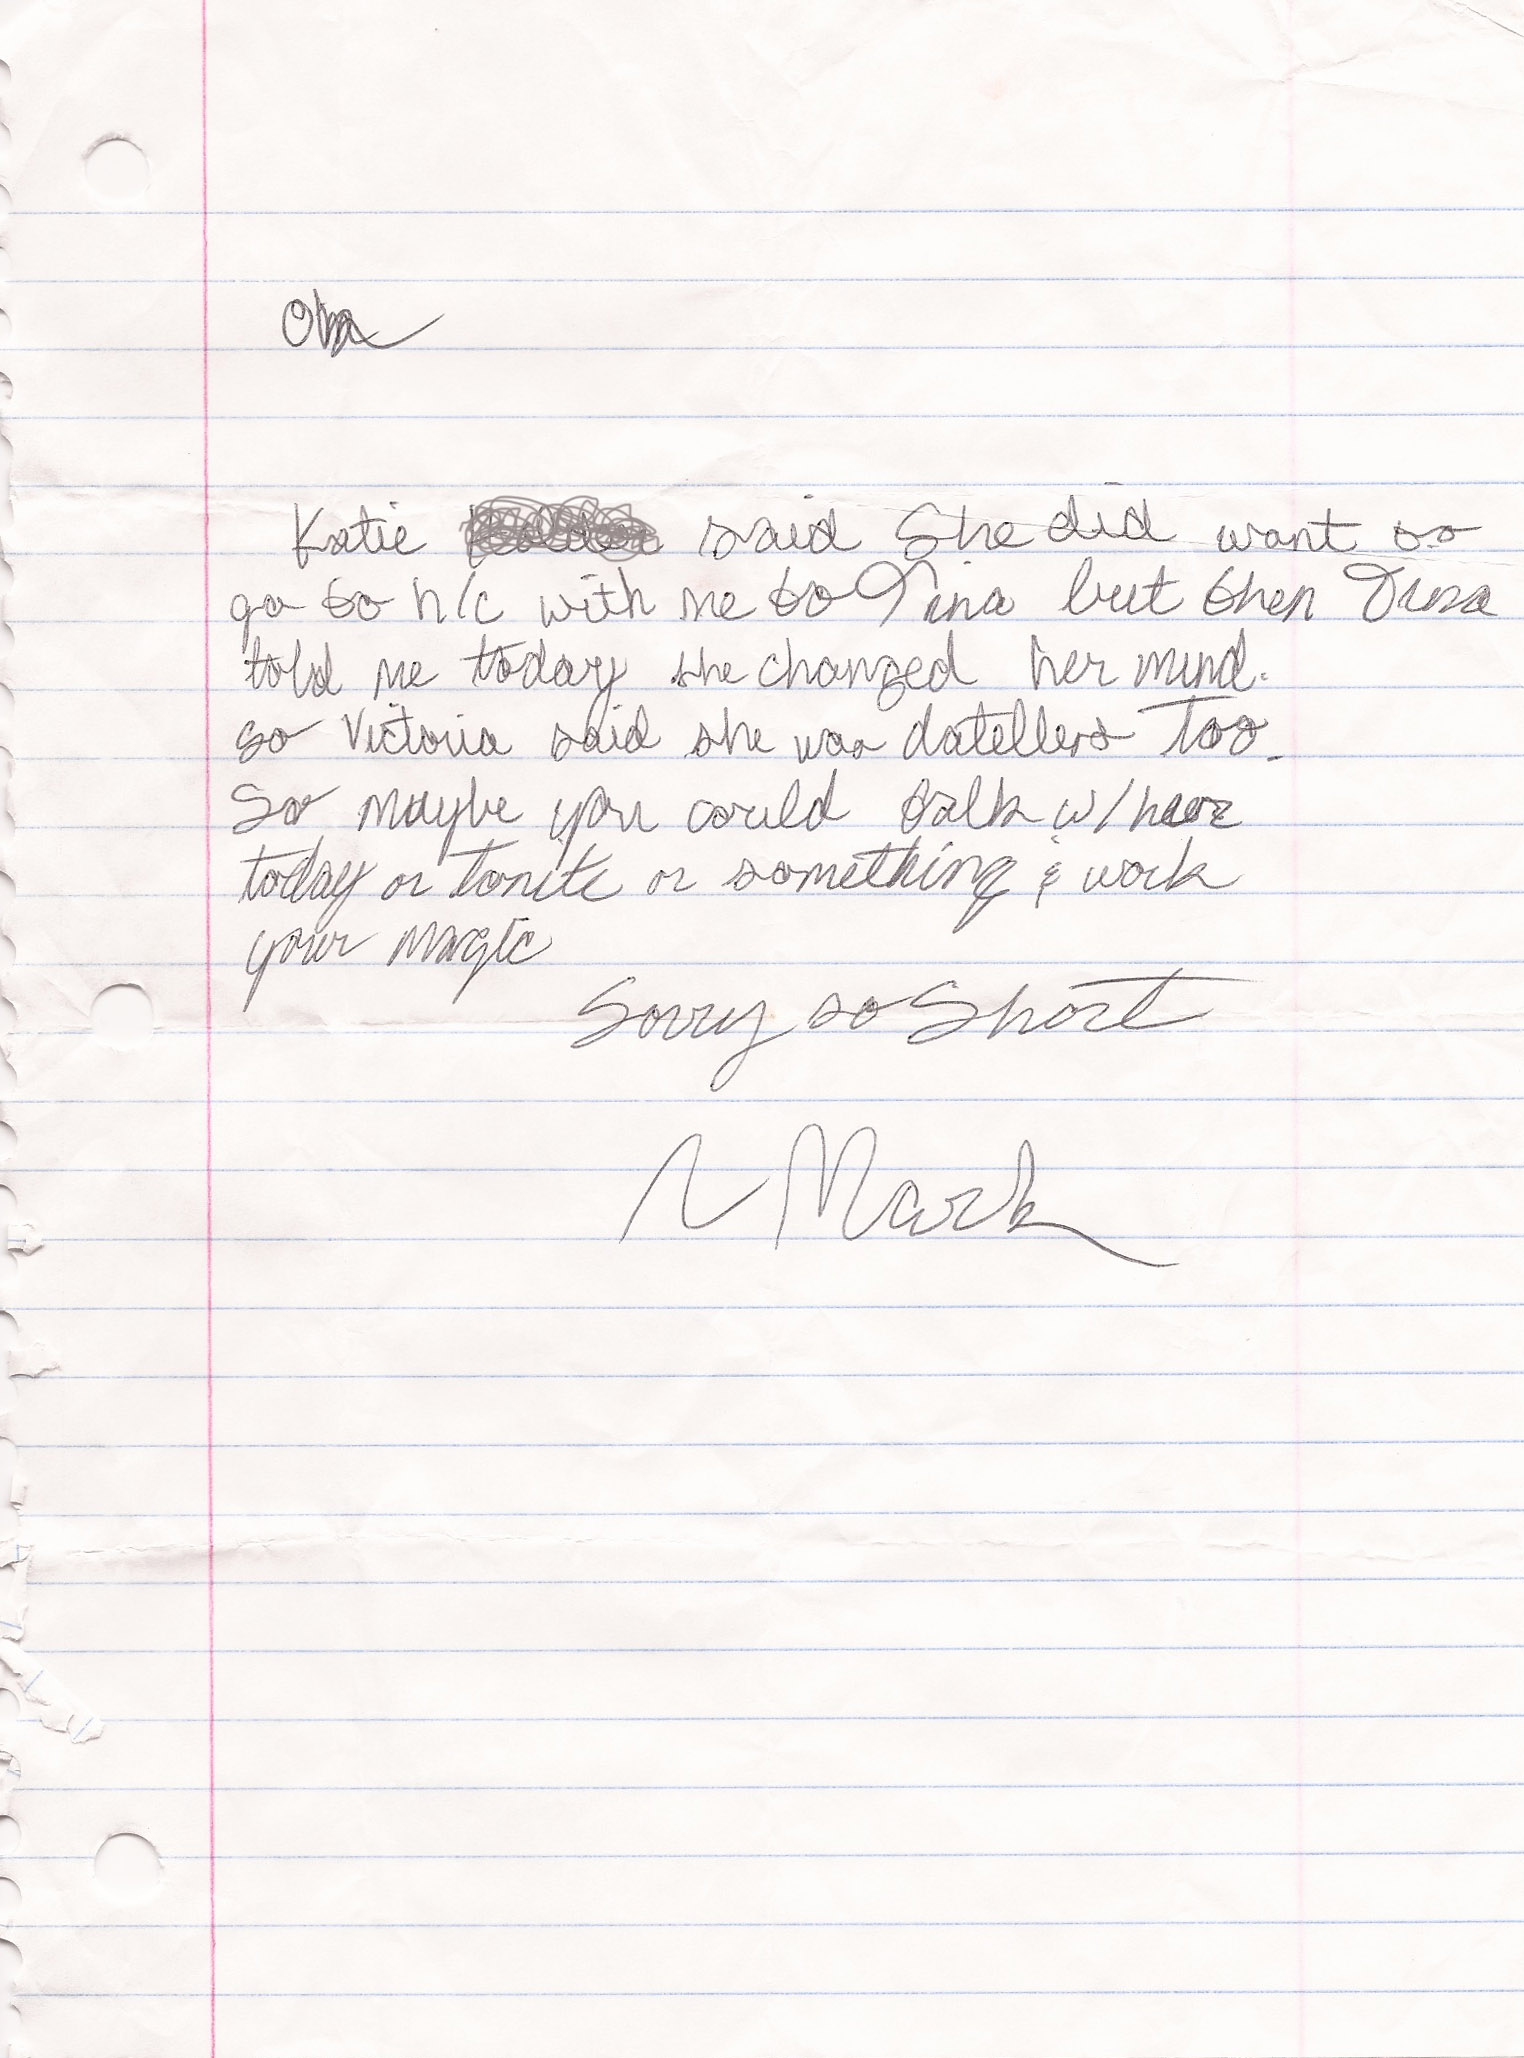 Katie said She did want to
go to h/c with me to Tina but then Tina
told me today she changed her mind.
so Victoria said she was datelless too.
So maybe you could talk w/ her
today or tonite or something & work
your magic
Sorry so Short
~ Mark